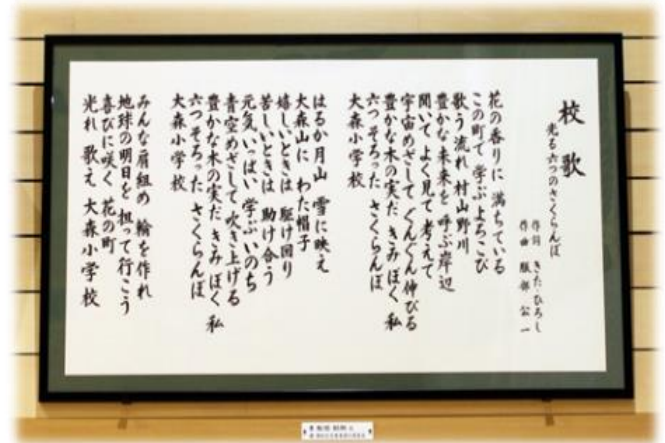 校歌
光る六つのさくらんぼ
作詞 きた・ひろし
作曲 服部公一
花の香りに 満ちている
この町で 学ぶよろこび
歌う流れ 村山野川
豊かな未来を 呼ぶ岸辺
聞いてよく見て 考えて
宇宙めざして ぐんぐん伸びる
豊かな木の実だ きみ ぼく 私
六つそろった さくらんぼ
大森小学校
はるか月山 雪に映え
大森山に わた帽子
嬉しいときは 駆け回り
苦しいときは 助け合う
元気いっぱい 学ぶいのち
青空めざして 吹き上げる
豊かな木の実だ きみ ぼく 私
六つそろった さくらんぼ
大森小学校
みんな肩組め 輪を作れ
地球の明日を 担って行こう
喜びに咲く 花の町
光れ 歌え 大森小学校